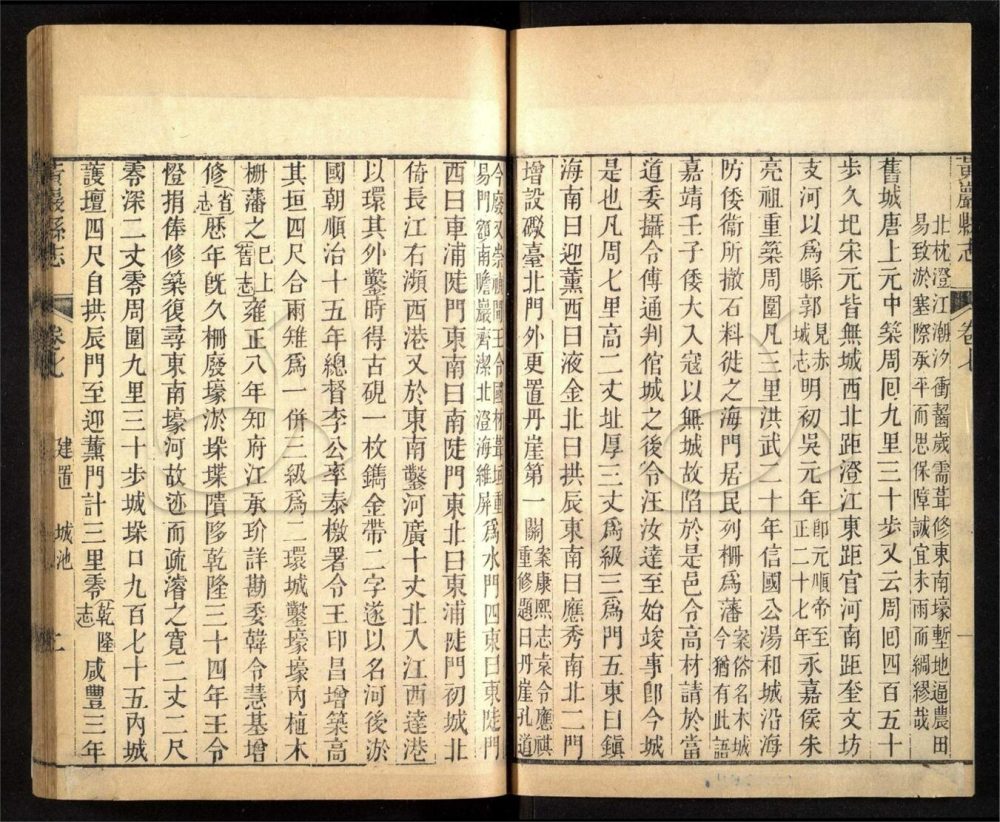 黃巖縣志
卷七
北枕澄江潮汐衝齧歲需葺修東南壕塹地逼農田
易致淤塞際承平而思保障誠宜未雨而綢繆哉
舊城唐上元中築周囘九里三十步又云周囘四百五十
步久圯宋元皆無城西北距澄江東距官河南距奎文坊
支河以爲縣郭見赤城志明初吳元年卽元順帝至正二十七年永嘉侯朱
亮祖重築周圍凡三里洪武二十年信國公湯和城沿海
防倭衞所撤石料徙之海門居民列柵爲藩案俗名木城今猶有此語
嘉靖壬子倭大入寇以無城故陷於是邑令高材請於當
道委攝令傅通判倌城之後令汪汝達至始竣事卽今城
是也凡周七里高二丈址厚三丈爲級三爲門五東曰鎭
海南曰迎薰西曰液金北曰拱辰東南曰應秀南北二門
增設礮臺北門外更置丹崖第一關案康熙志袁令應祺重修題曰丹崖孔道
今廢又崇禎間王令國
易門額南瞻巖齊潔北澄海維屏爲水門四東曰東陡門
西曰車浦陡門東南曰南陡門東北曰東浦陡門初城北
倚長江右瀕西港又於東南鑿河廣十丈北入江西達港
以環其外鑿時得古硯一枚鐫金帶二字遂以名河後淤
國朝順治十五年總督李公率泰檄署令王印昌增築高
其垣四尺合兩雉爲一併三級爲二環城鑿壕壕內植木
柵藩之已上舊志雍正八年知府江承玠詳勘委韓令慧基增
修省志歷年旣久柵廢壕淤垛堞隤陊乾隆三十四年王令
憕捐俸修築復尋東南壕河故迹而疏濬之寬二丈二尺
零深二丈零周圍九里三十步城垛口九百七十五內城
護壇四尺自拱辰門至迎薰門計三里零乾隆志咸豐三年
黃巖縣志
卷七
建置
城池